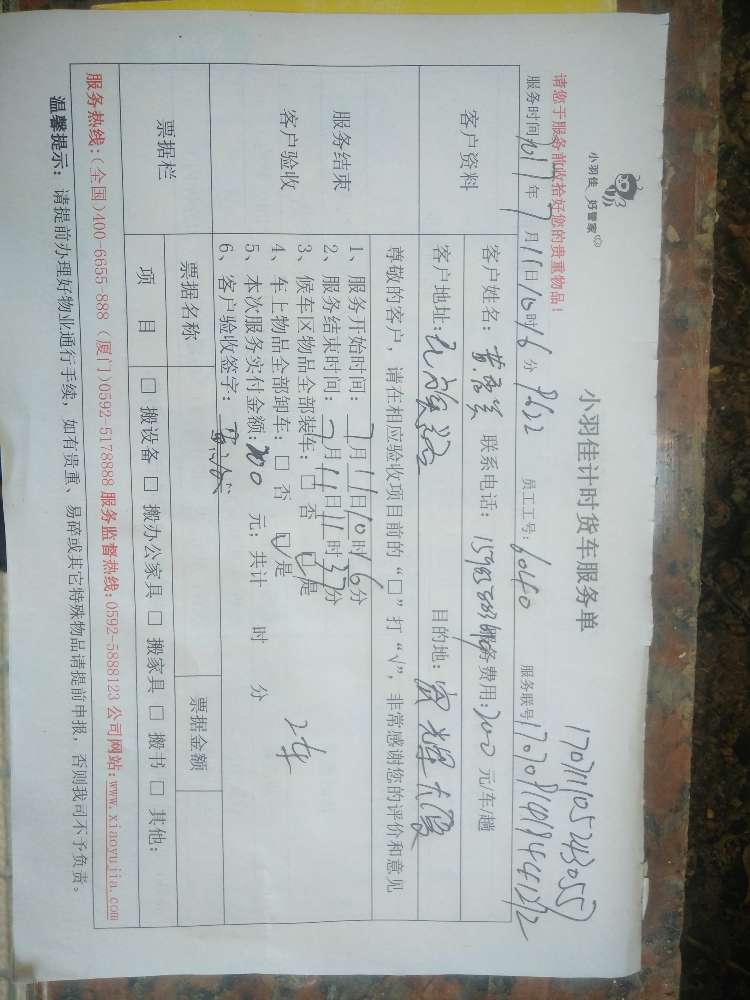 小羽佳 好管家
小羽佳计时货车服务单
17071105243055
请您于服务前收拾好您的贵重物品！
服务时间 2017年7月11日10时16分 员工工号：60440 服务联号
客户资料
客户姓名： 联系电话： 服务费用：200元/车/趟
客户地址： 目的地：大厦
尊敬的客户，请在相应验收项目前的“□”打“√”，非常感谢您的评价和意见
服务结束
客户验收
1、服务开始时间：7月11日10时16分
2、服务结束时间：7月11日11时37分
3、候车区物品全部装车：□ 否 ☑是
4、车上物品全部卸车：□ 否 ☑是
5、本次服务实付金额：200 元；共计 时 分
6、客户验收签字：
票据栏
票据名称 票据金额
项 目 □ 搬设备 □ 搬办公家具 □ 搬家具 □ 搬书 □ 其他：
服务热线：（全国）400-6655-888（厦门）0592-5178888 服务监督热线：0592-5888123 公司网站：www.xiaoyujia.com
温馨提示： 请提前办理好物业通行手续，如有贵重、易碎或其它特殊物品请提前申报，否则我司不予负责。